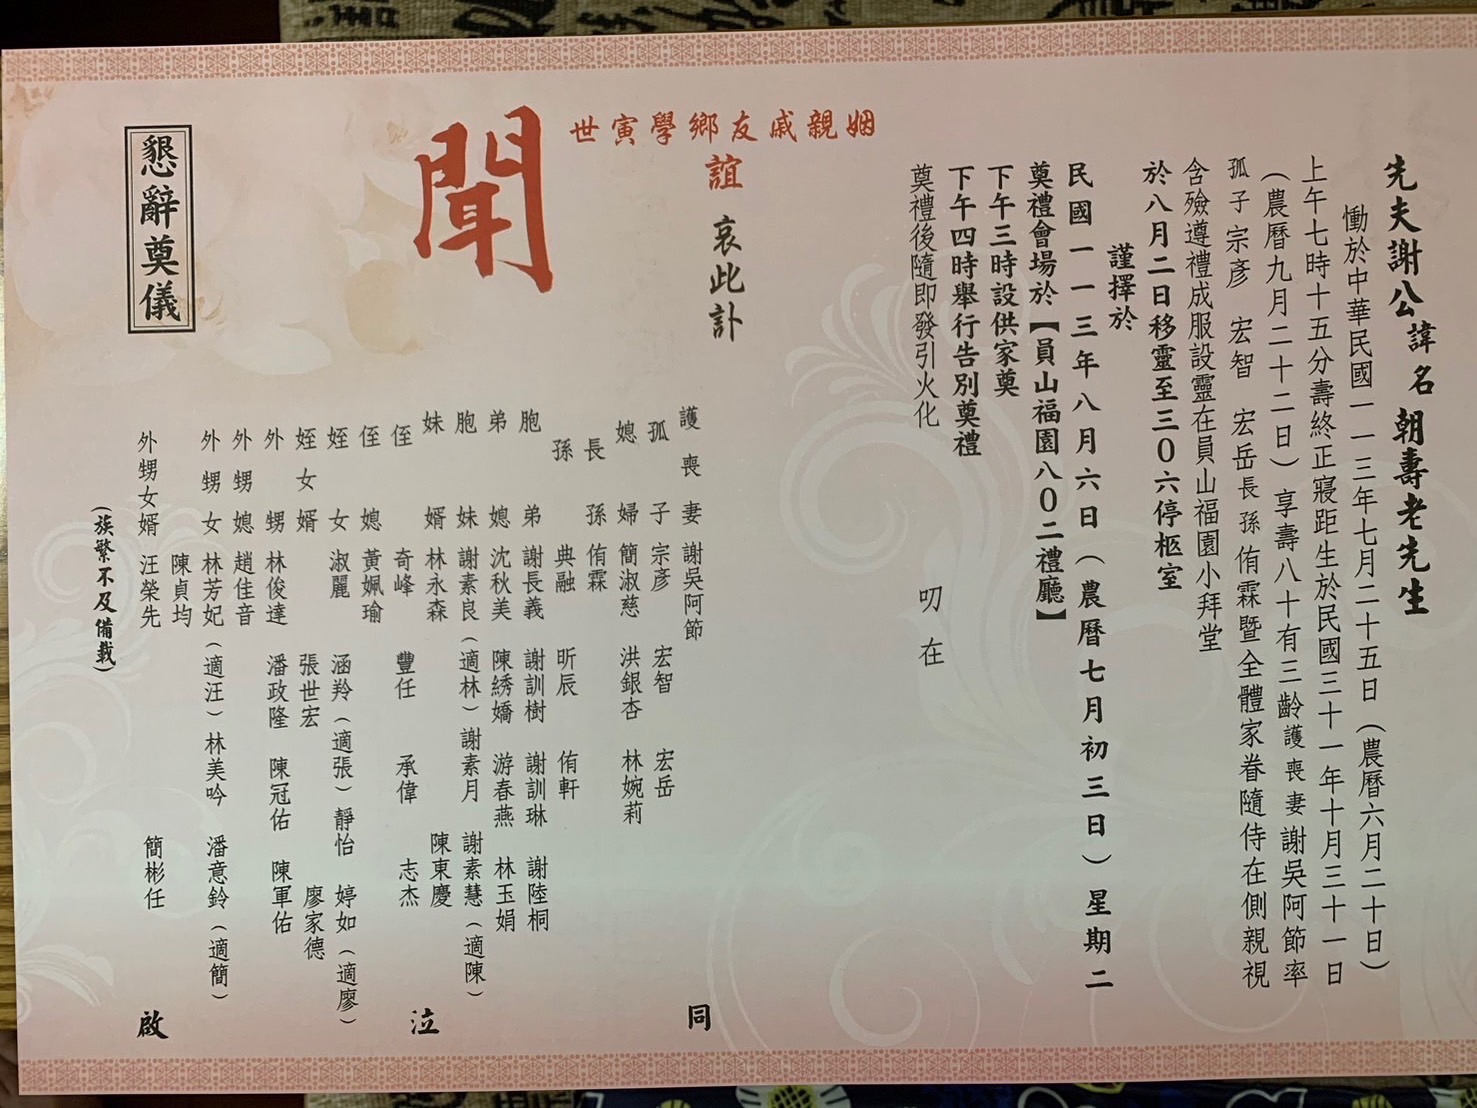 先夫謝公諱名朝壽老先生
慟於中華民國一一三年七月二十五日(農曆六月二十日)
上午七時十五分壽終正寢距生於民國三十一年十月三十一日
(農曆九月二十二日)享壽八十有三齡護喪妻謝吳阿節率
孤子宗彥 宏智 宏岳長孫侑霖暨全體家眷隨侍在側親視
含殮遵禮成服設靈在員山福園小拜堂
於八月二日移靈至三０六停柩室
謹擇於
民國一一三年八月六日(農曆七月初三日)星期二
奠禮會場於【員山福園八０二禮廳】
下午三時設供家奠
下午四時舉行告別奠禮
奠禮後隨即發引火化
叨在
姻親戚友鄉學寅世
誼 哀此訃
聞
護喪妻 謝吳阿節
孤子 宗彥 宏智 宏岳
媳婦 簡淑慈 洪銀杏 林婉莉
長孫 侑霖
孫 典融 昕辰 侑軒
胞弟 謝長義 謝訓樹 謝訓琳 謝陸桐
弟媳 沈秋美 陳綉嬌 游春燕 林玉娟
胞妹 謝素良(適林) 謝素月 謝素慧(適陳)
妹婿 林永森 陳東慶
侄 奇峰 豐任 承偉 志杰
侄媳 黃姵瑜
姪女 淑麗 涵羚(適張) 靜怡 婷如(適廖)
姪女婿 張世宏 廖家德
外甥 林俊達 潘政隆 陳冠佑 陳軍佑
外甥媳 趙佳音
外甥女 林芳妃(適汪) 林美吟 潘意鈴(適簡)
陳貞均
外甥女婿 汪榮先 簡彬任
(族繁不及備載)
同
泣
啟
懇辭奠儀